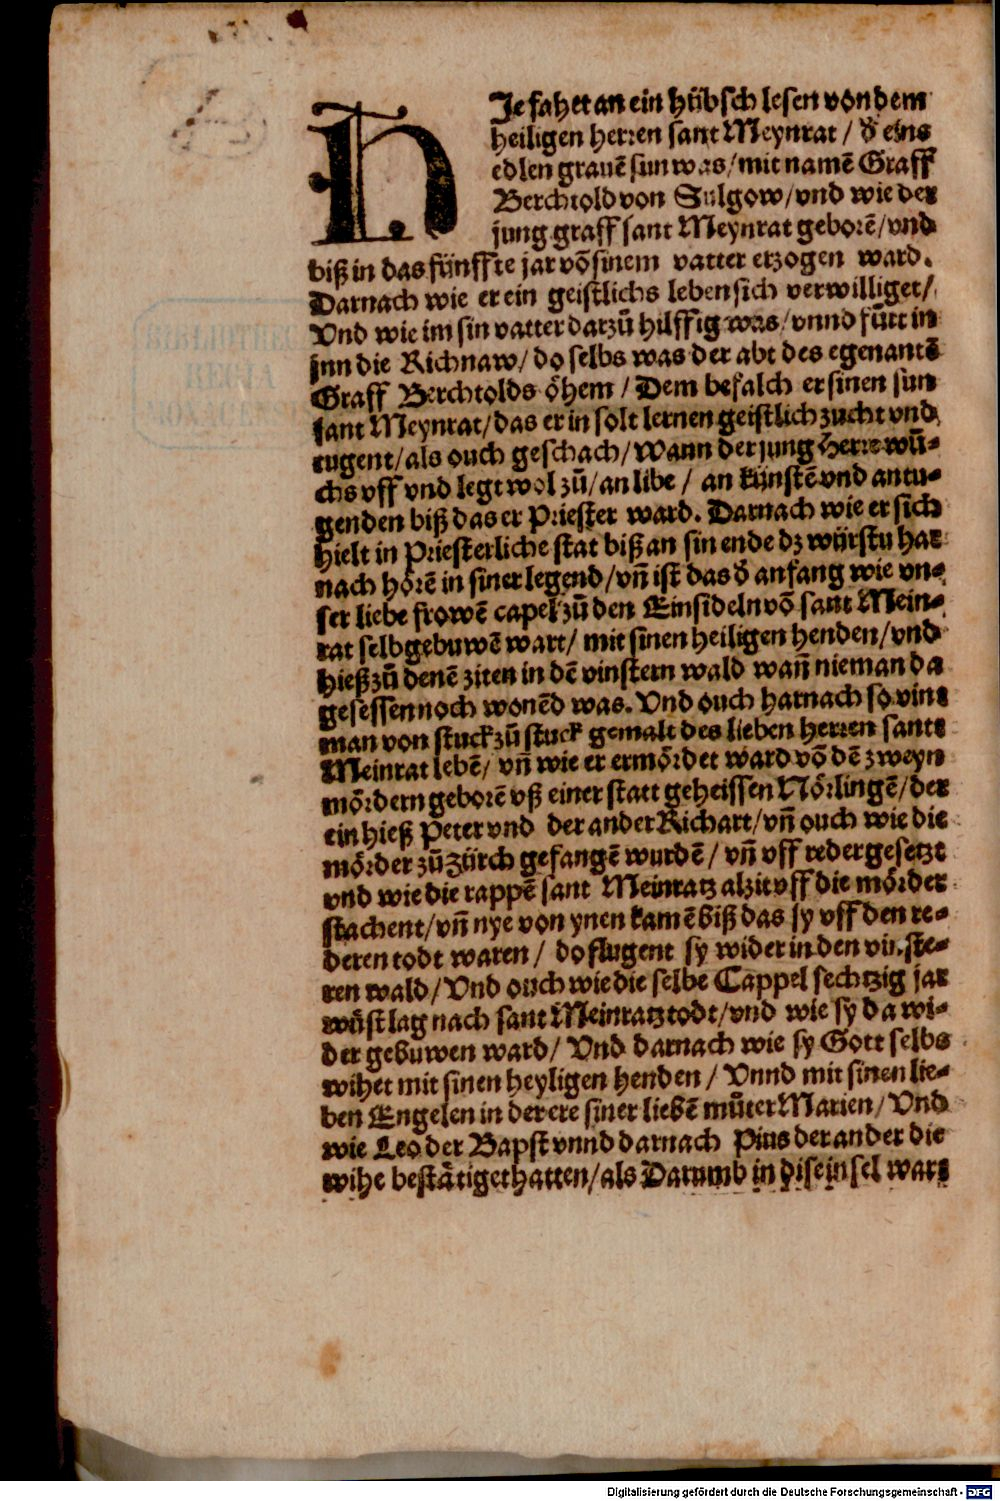 HJe fahet an ein hübsch lesen von dem
heiligen herren sant Meynrat / d̕ eins
edlen grauē sun was / mit namē Graff
Berchtold von Sulgow / vnd wie der
jung graff sant Meynrat geborē / vnd
biß in das fünffte jar võ sinem vatter erzogen ward.
Darnach wie er ein geistlichs leben sich verwilliget /
Vnd wie im sin vatter darzů hilffig was / vnnd fůrt in
jnn die Richnaw / do selbs was der abt des egenantē
Graff Berchtolds öhem / Dem befalch er sinen sun
sant Meynrat / das er in solt lernen geistlich zucht vnd
tugent / als ouch geschach / Wann der jung Herre wů-
chs vff vnd legt wol zů / an libe / an künstē vnd an tu-
genden biß das er Priester ward. Darnach wie er sich
hielt in Priesterliche stat biß an sin ende dz würstu har
nach hörē in siner legend / vñ ist das d̕ anfang wie vn-
ser liebe frowē capel zů den Einsideln võ sant Mein-
rat selb gebuwē wart / mit sinen heiligen henden / vnd
hieß zů denē ziten in dē vinstern wald wañ nieman da
gesessen noch wonēd was. Vnd ouch harnach so vint
man von stuck zů stuck gemalt des lieben herren sant
Meinrat lebē / vñ wie er ermördet ward võ dē zweyn
mördern geborē vß einer statt geheissen Nörlingē / der
ein hieß Peter vnd der ander Richart / vñ ouch wie die
mörder zů Zürch gefangē wurdē / vñ vff reder gesetzt
vnd wie die rappē sant Meinratz alzit vff die mörder
stachent / vñ nye von ynen kamē biß das sy vff den re-
deren todt waren / do flugent sy wider in den vinste-
ren wald / Vnd ouch wie die selbe Cappel sechtzig jar
wůst lag nach sant Meinratz todt / vnd wie sy da wi-
der gebuwen ward / Vnd darnach wie sy Gott selbs
wihet mit sinen heyligen henden / Vnnd mit sinen lie-
ben Engelen in der ere siner liebē můter Marien / Vnd
wie Leo der Bapst vnnd darnach Pius der ander die
wihe bestätiget hatten / als Darumb in dise insel wart
BIBLIOTHECA
REGIA
MONACENSIS
Digitalisierung gefördert durch die Deutsche Forschungsgemeinschaft - DFG